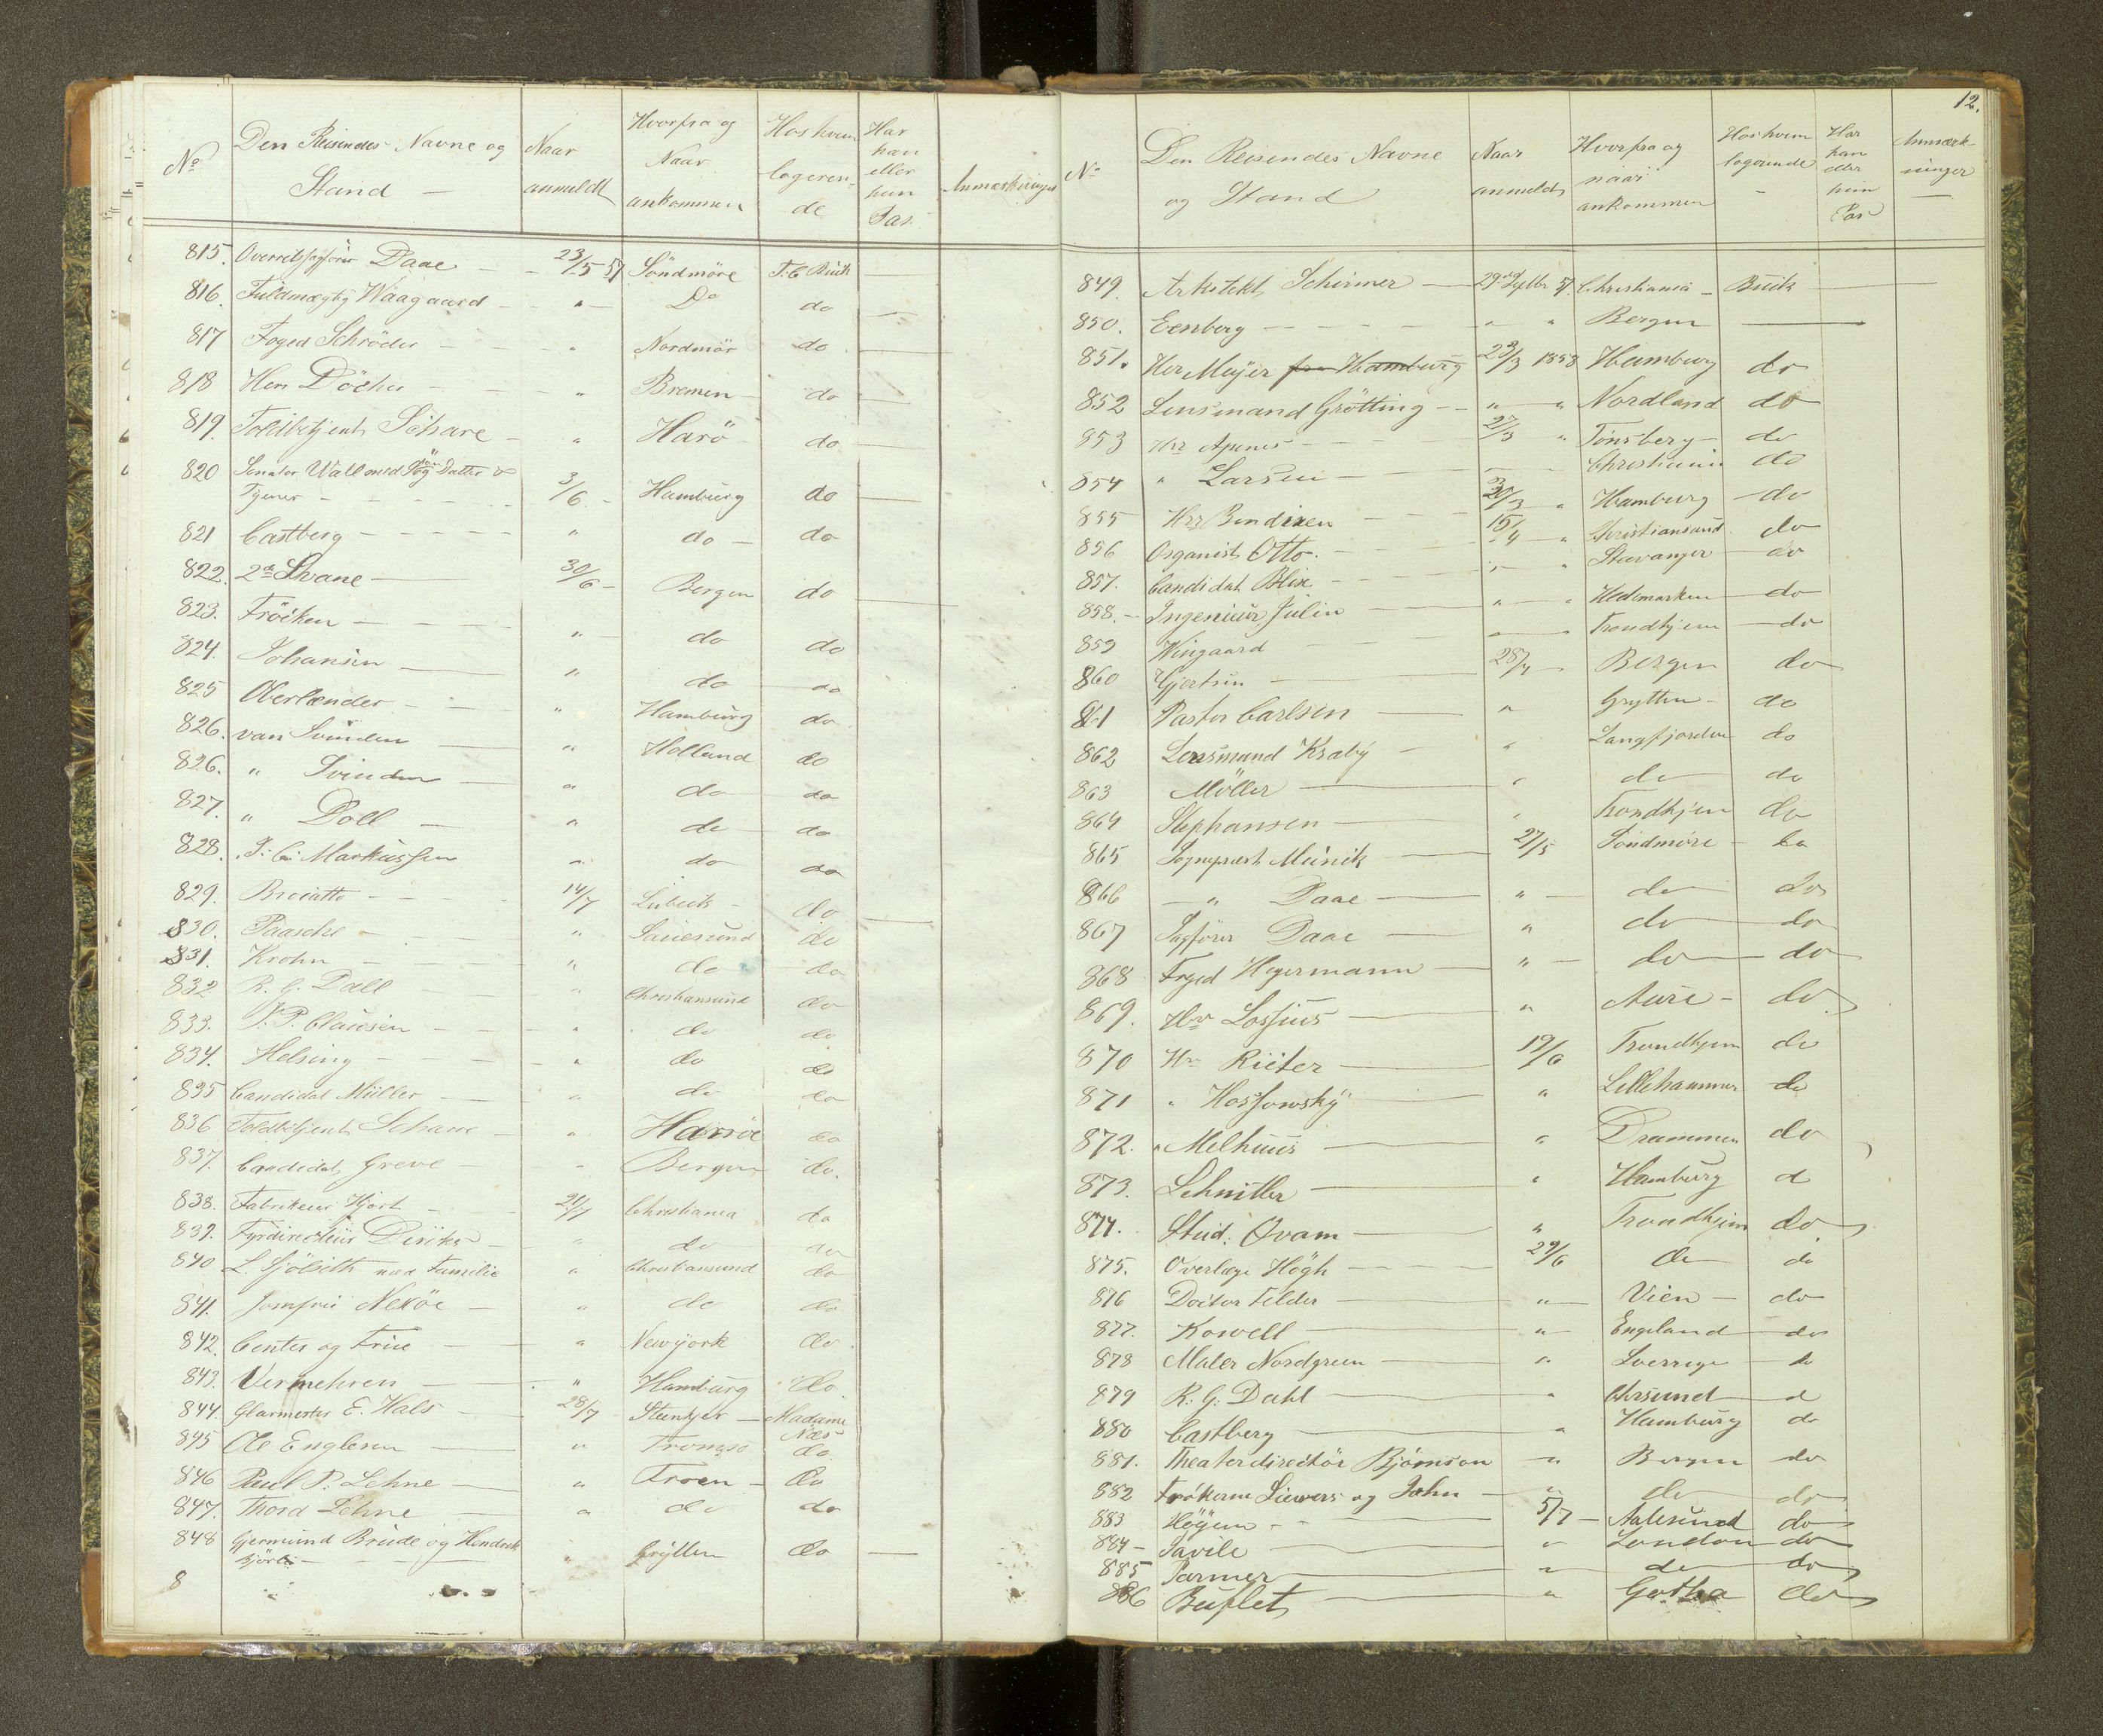 No
Den Reisendes Navne og Stand —
Naar anmeldt
Hvorfra og Naar ankommen
Hos hvem logeren-de
Har han eller hun Pas
Anmærkninger
815. Overretssagfører Daae — 23/5 57 Söndmöre T. C. Buck —
816. Fuldmægtig Waagaard — " — Do do —
817 Foged Schröder — " Nordmör do —
818 Herr Döcher — " Bremen — do —
819. Toldbetjent Schare — " Harö do —
820 Senator Wall med Datter &
Tjener — 3/6 — Hamburg do —
821 Castberg — " do — do
822. 2de Svane — 30/6 — Bergen do —
823. Fröiken — " — do do
824. Johansen — " do do
825 Oberlænder — " Hamburg do
826. van Svinden — " Holland do
826. " Svinden — " do do
827. " Doll — " do do
828. J: C: Markussen " do do
829. Broiatto — 14/7 Lübeck — do —
830. Paasche — " do
831. Krohn — " do do
832 R. G. Dall — " Christiansund do
833. J. P. Clausen — " do do
834. Helsing — " do do
835 Candidat Müller — " do do
836 Toldbetjent Schare — " Haröe do
837. Candidat Greve — " Bergen do.
838. Fabrikeur Hjort — 21/7 Christiania do
839. Fyrdirecteur Diriks — " do do
840 L. Sjölseth med Familie " Christiansund do
841. Jomfru Nexöe — " do do
842. Center og Frue — " Newyork do.
843. Vermehren — " Hamburg do.
844. Glarmester E. Hals — 28/7 Steenkjer — Madame Næs
845 Ole Englesen — " Tromsö do
846 Paul P. Lehne — " Troen — do
847. Thord Lehne — " do do
848 Gjermund Brude og Hendrek
— " Grytten do —
8
12.
No
Den Reisendes Navne og Stand
Naar anmeldt
Hvorfra og naar ankommen
Hos hvem logerende —
Har han eller hun Pas
Anmærkninger —
849. Arkitekt Schirmer — 29de Septbr 57. Christiania — Buck —
850. Eenberg — " " Bergen —
851. Her Meyer fra Hamburg 23/3 1858 Hamburg do
852 Lensmand Grötting — " — " Nordland do
853 Hr Apenes — 27/3 " Tönsberg — do
854 " Larsen — Christiania do
855 Hr Bendixen — 30/3 " Hamburg — do
856 Organist Otto. — 15/4 — " Christiansund do
857. Candidat Blix — " — " Stavanger — do
858. — Ingenieur Julin — " — " Hedemarken — do
859 Wingaard — Trondhjem — do
860 Gjertsen — 28/4 — Bergen do
861 Pastor Carlsen — " Grytten — do
862 Lensmand Kraby — " Langfjorden do
863 Möller — " do do
864 Stephansen — " Trondhjem do
865 Sogneprest Meinik — 27/5 Söndmöre — do
866 — " Daae — " — do do
867 Sagförer Daae — " do do
868 Foged Hegermann — " — do do
869. Hr Lossius — " Aure — do
870 Hr Rieter — 19/6 Trondhjem do
871 " Hossowsky — " Lillehammer do
872. " Melhuus — " Drammen do
873. Schnitler — " Hamburg d
874. Stud: Qvam — " Trondhjem do
875. Overlæge Högh — 29/6 do do
876 Doctor Felder — " — Vien — do
877. Kowell — " — England do
878 Maler Nordgreen — " Sverrige — do
879 R. G. Dahl — " Chrsund — d
880 Castberg — " Hamburg do
881. Theaterdirectör Björnson — " Bergen do
882 Frökerne Siewers og Jahn — " do do
883 Höyem — 5/7 — Aalesund do
884 — Savile — " London do
885 Parmer — " do do
886 Buflet — " Gotha do